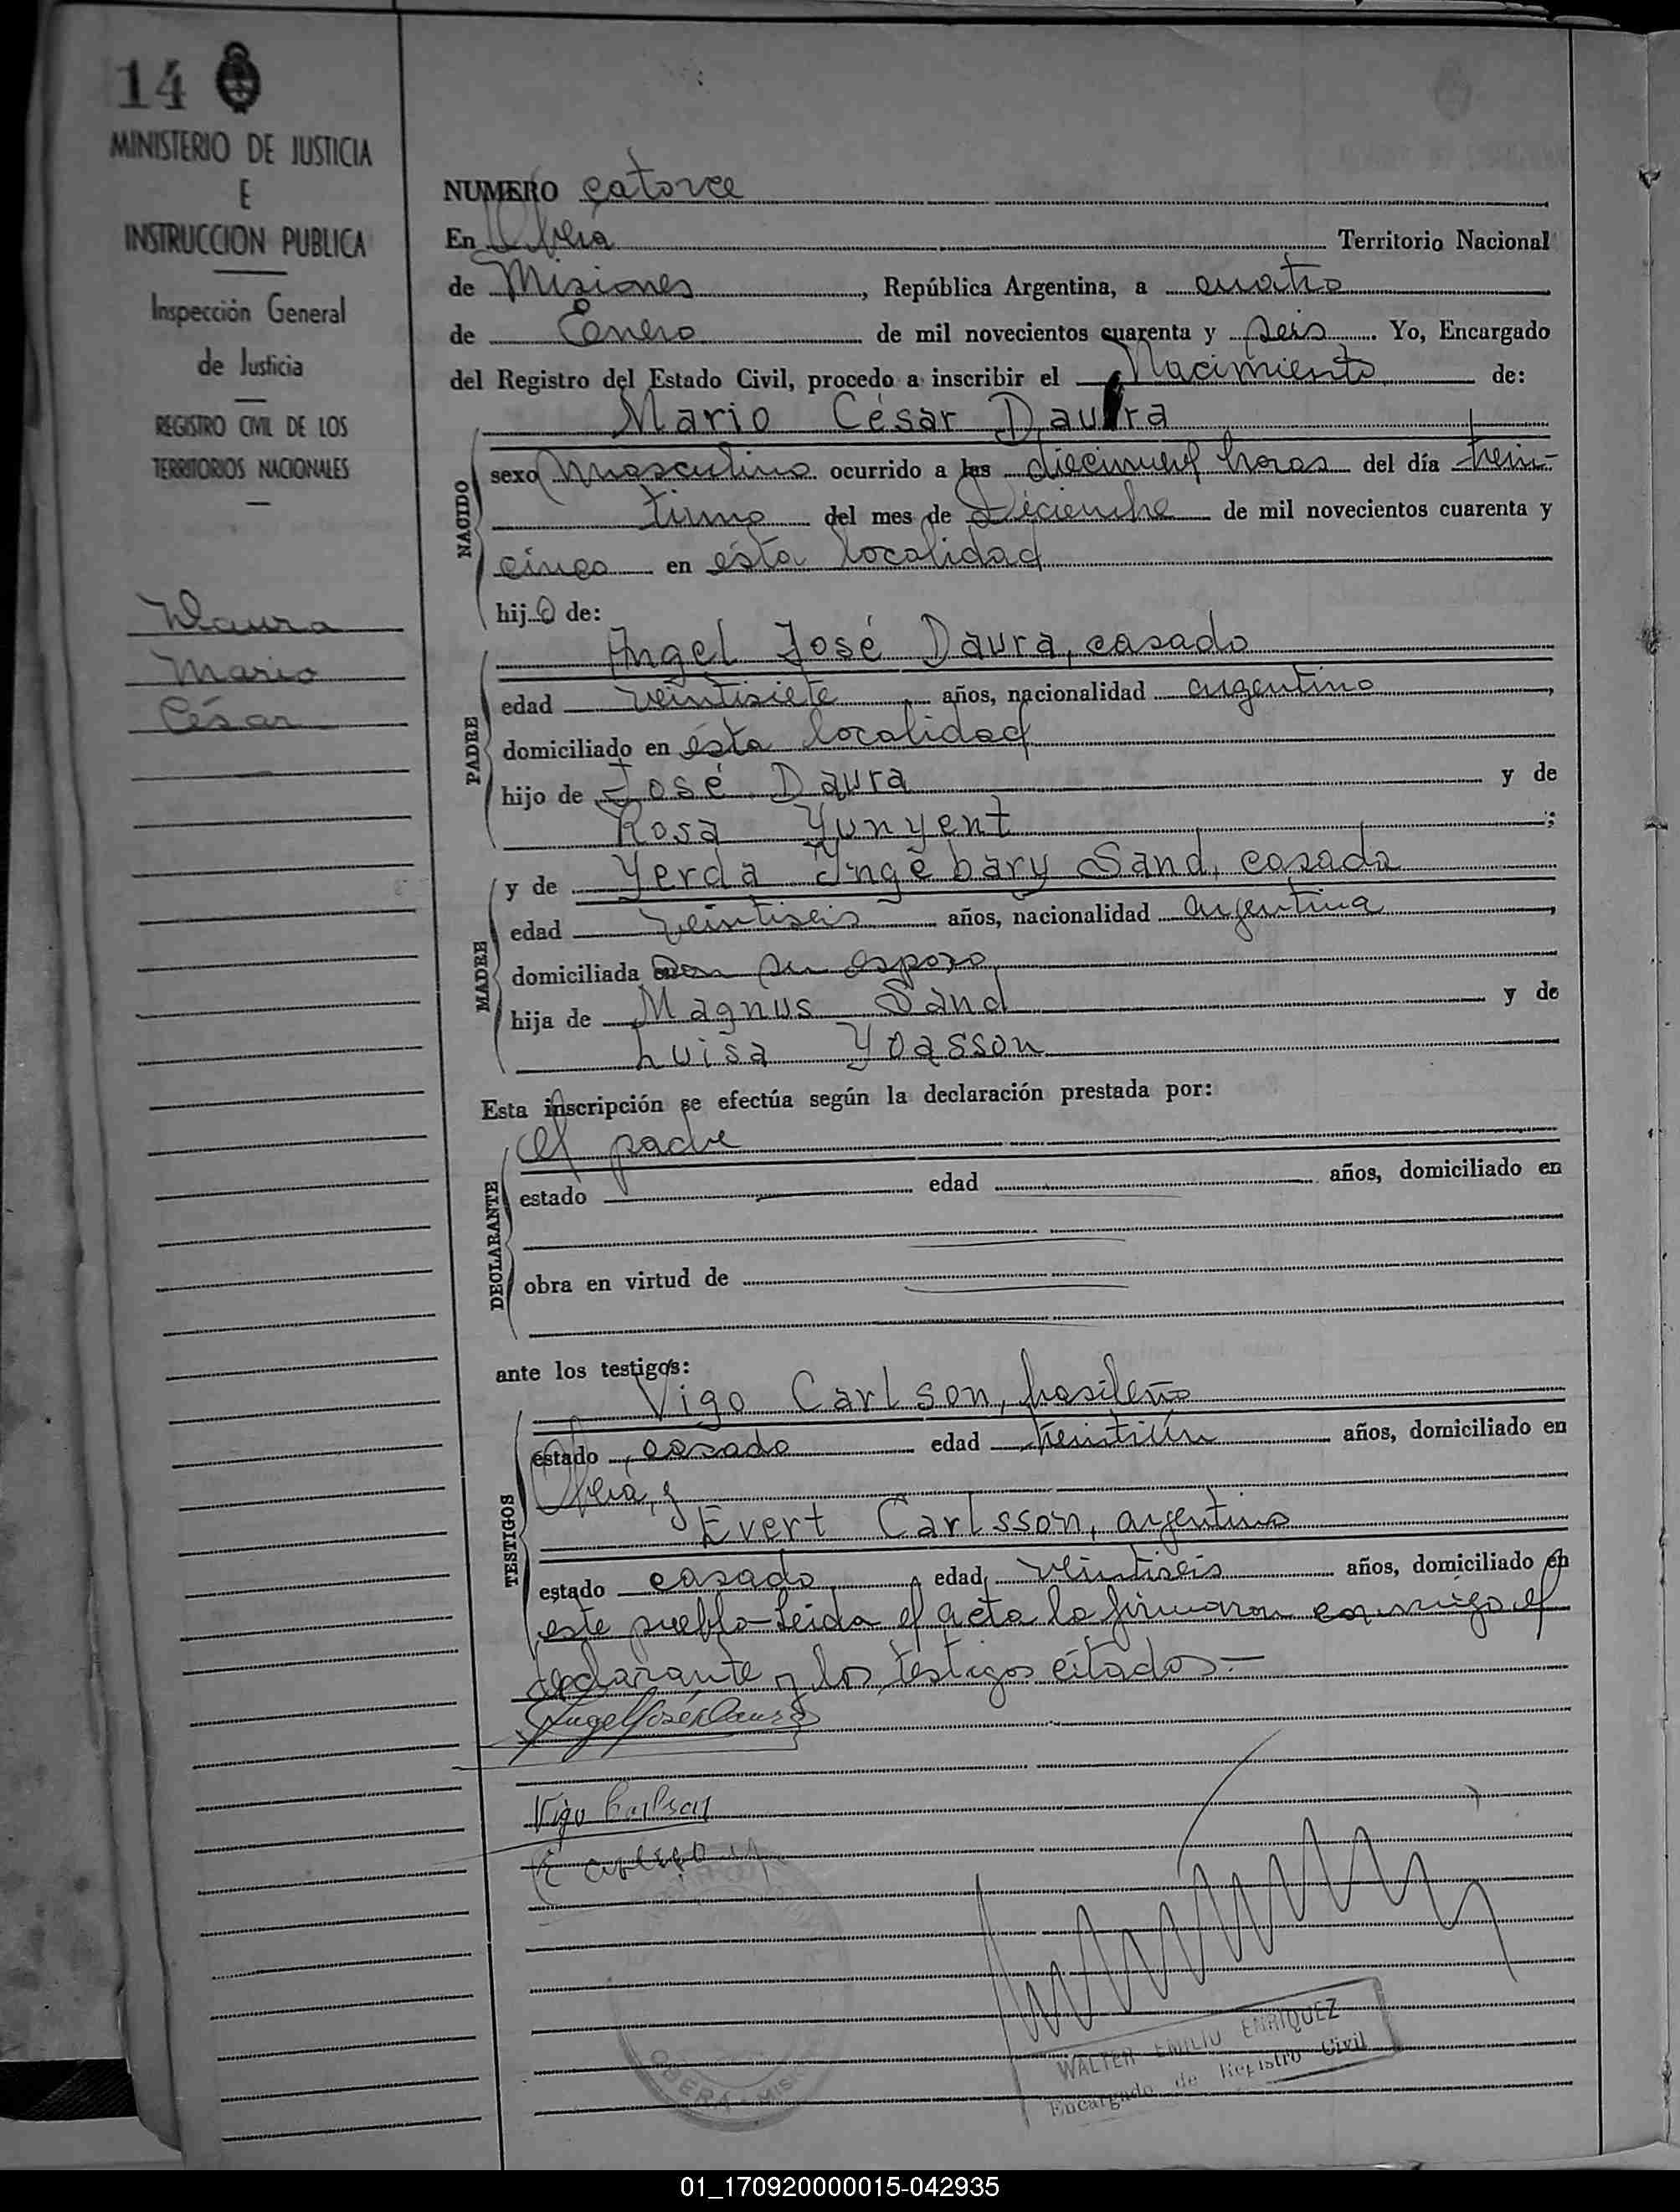 14
MINISTERIO DE JUSTICIA
E
INSTRUCCION PUBLICA
Inspección General
de Justicia
REGISTRO CIVIL DE LOS
TERRITORIOS NACIONALES
Daura
Mario
César
NUMERO catorce
En Oberá Territorio Nacional
de Misiones, República Argentina, a cuatro
de Enero de mil novecientos cuarenta y seis. Yo, Encargado
del Registro del Estado Civil, procedo a inscribir el Nacimiento de:
Mario César Daura
NACIDO
sexo masculino ocurrido a las diecinueve horas del día trein-
tiuno del mes de Diciembre de mil novecientos cuarenta y
cinco en ésta localidad
hijo de:
PADRE
Angel José Daura, casado
edad veintisiete años, nacionalidad argentino,
domiciliado en ésta localidad
hijo de José Daura y de
Rosa Yunyent;
MADRE
y de Yerda Yngebary Sand, casada
edad veintiseis años, nacionalidad argentina,
domiciliada con su esposo
hija de Magnus Sand y de
Luisa Yoasson
Esta inscripción se efectúa según la declaración prestada por:
DECLARANTE
el padre
estado edad años, domiciliado en
obra en virtud de
ante los testigos:
TESTIGOS
Vigo Carlson, brasileño
estado casado edad treintiún años, domiciliado en
Oberá, y
Evert Carlsson, argentino
estado casado edad veintiseis años, domiciliado en
este pueblo - Leida el acta la firmaron conmigo el
declarante y los testigos citados.-
Angel José Daura
Vigo Carlson
OBERA - MIS
WALTER EMILIO ENRIQUEZ
Encargado de Registro Civil
01_170920000015-042935